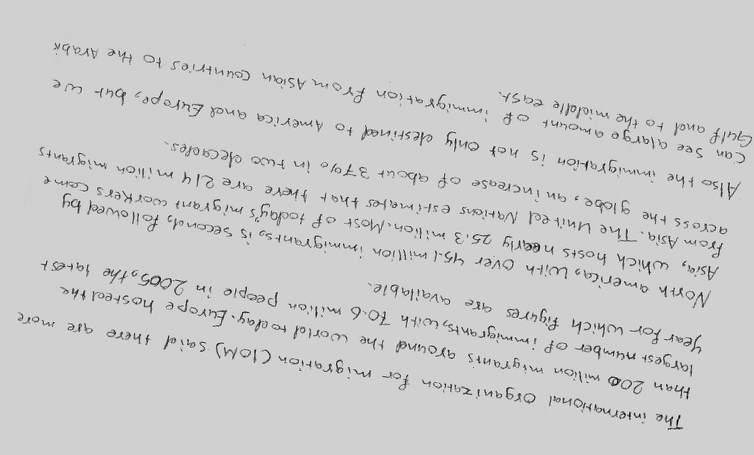 The international organization for migration (IOM) said there are more
than 200 milion migrants around the world today. Europe hosted the
largest number of immigrants, with 70.6 million people in 2005, the latest
year for which figures are available.
North america, with over 45.1 million immigrants, is second, followed by
Asia, which hosts nearly 25.3 milion. Most of today's migrant workers come
from Asia. The United Nations estimates that there are 214 million migrants
across the globe, an increase of about 37% in two decades.
Also the immigration is not only destined to America and Europe, but we
can see a large amount of immigration from Asian countries to the Arabi
Gulf and to the middle east.